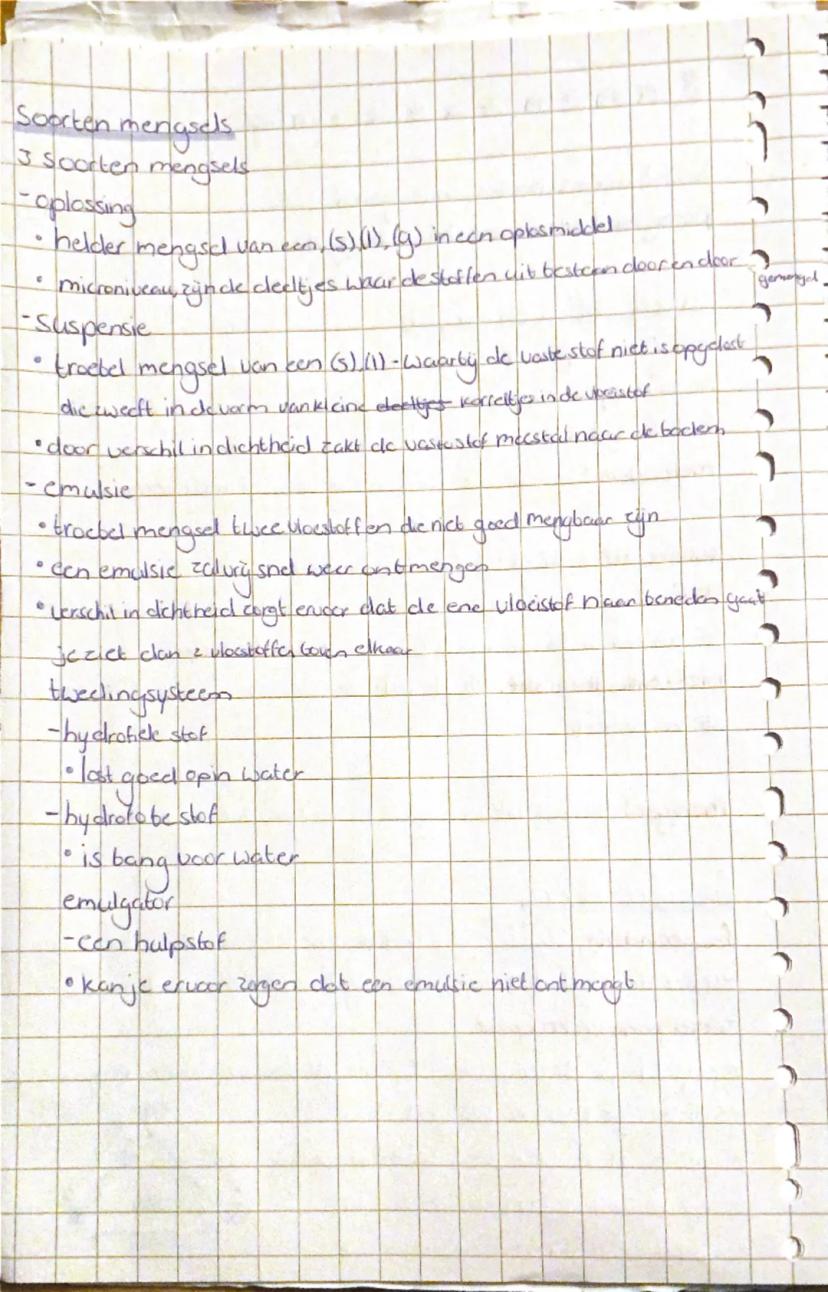 Soorten mengsels
3 soorten mengsels
- oplossing
• helder mengsel van een (s)(l), (g) in een oplosmiddel
• microniveau, zijn de deeltjes waar de stoffen uit bestaan door en door gemengd
- suspensie
• troebel mengsel van een (s),(l) - waarbij de vaste stof niet is opgelost
die zweeft in de vorm van kleine deeltjes korreltjes in de vloeistof
• door verschil in dichtheid zakt de vaste stof meestal naar de bodem
- emulsie
• troebel mengsel twee vloeistoffen die niet goed mengbaar zijn
• een emulsie zal vrij snel weer ontmengen
• verschil in dichtheid zorgt ervoor dat de ene vloeistof naar beneden gaat
je ziet dan 2 vloeistoffen boven elkaar
tweelingsysteem
- hydrofiele stof
• lost goed op in water
- hydrofobe stof
• is bang voor water
emulgator
- een hulpstof
• kan je ervoor zorgen dat een emulsie niet ontmengt